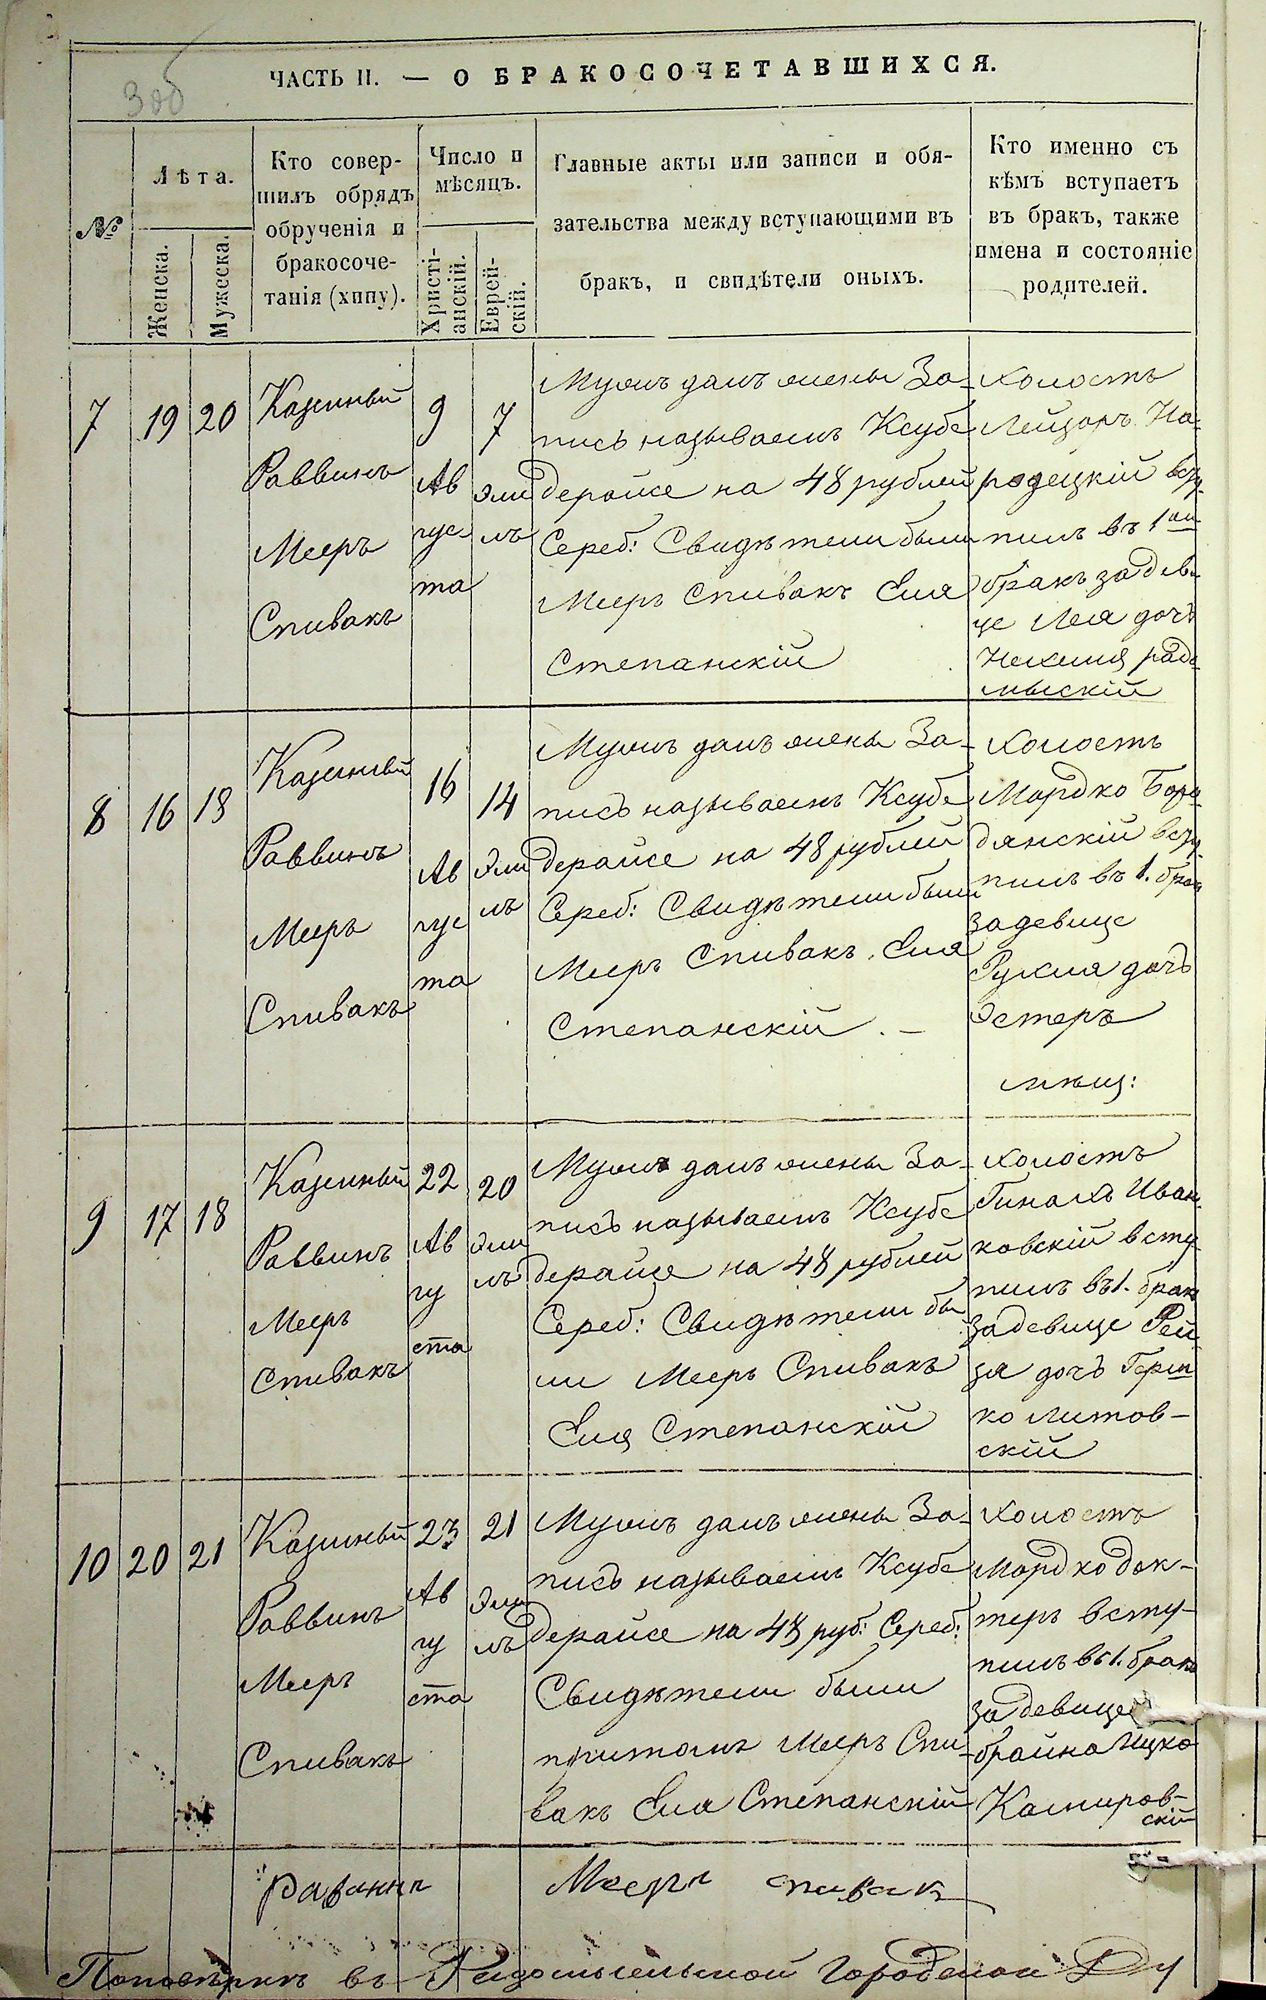 ЧАСТЬ II. — О БРАКОСОЧЕТАВШИХСЯ.
№
Лѣта.
Женска.
Мужеска.
Кто совер-
шилъ обрядъ
обрученія и
бракосоче-
танія (хипу).
Число и
мѣсяцъ.
Христі-
анскій.
Еврей-
скій.
Главные акты или записи и обя-
зательства между вступающими въ
бракъ, и свидѣтели оныхъ.
Кто именно съ
кѣмъ вступаетъ
въ бракъ, также
имена и состояніе
родителей.
7
19
20
Казенный
Раввинъ
Мееръ
Спивакъ
9
Ав
гус
та
7
Эли
лъ
Мужъ далъ жены За-
пись называемъ Ксубе
дерайсе на 48 рублей
Сереб: Свидѣтели были
Мееръ Спивакъ Еля
Степанскій
Холостъ
Лейзоръ На-
родецкій всту-
пилъ въ 1ый
бракъ за деви-
це Лея дочь
Нехемя радо-
мыскій
8
16
18
Казенный
Раввинъ
Мееръ
Спивакъ
16
Ав
гус
та
14
Эли
лъ
Мужъ далъ жены За-
пись называемъ Ксубе
дерайсе на 48 рублей
Сереб: Свидѣтели были
Мееръ Спивакъ, Еля
Степанскій. —
Холостъ
Мордко Боро-
дянскій всту-
пилъ въ 1. брак
за девице
Рухля дочь
Эстеръ
мѣщ:
9
17
18
Казенный
Раввинъ
Мееръ
Спивакъ
22
Ав
гу
ста
20
Эли
лъ
Мужъ далъ жены За-
пись называемъ Ксубе
дерайсе на 48 рублей
Сереб: Свидѣтели бы
ли Мееръ Спивакъ
Еля Степанскій
Холостъ
Пинахъ Иван-
ковскій всту-
пилъ въ 1. брак
за девице Рей
зя дочь Герш
ко Литов-
скій
10
20
21
Казенный
Раввинъ
Мееръ
Спивакъ
23
Ав
гу
ста
21
Эли
лъ
Мужъ далъ жены За-
пись называемъ Ксубе
дерайсе на 48 руб: Сереб:
Свидѣтели были
притомъ Мееръ Спи-
вакъ Еля Степанскій
Холостъ
Мордко док-
теръ всту-
пилъ въ 1. брак
за девице
брайна Ицко
Каштров-
скій
Раввинъ Мееръ Спивакъ
въ Радомысльской Городской Ду